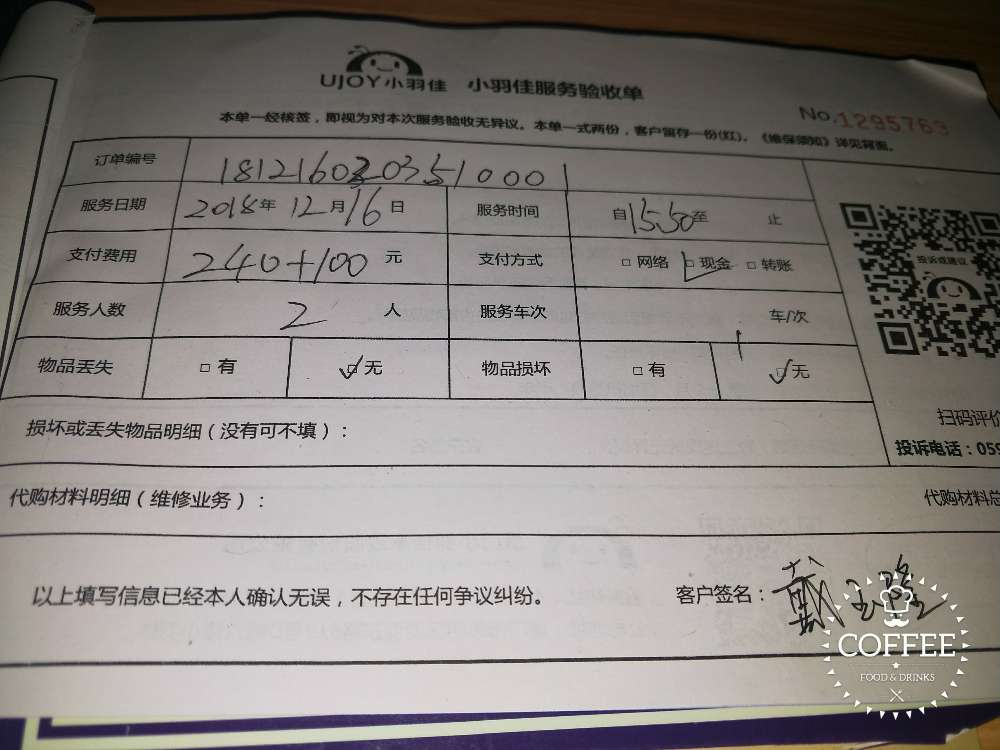 UJOY小羽佳 小羽佳服务验收单
No.1295763
本单一经核签，即视为对本次服务验收无异议。本单一式两份，客户留存一份(红)。《维保须知》详见背面。
订单编号 1812160320351000
服务日期 2018年12月16日 服务时间 自15.50至 止
支付费用 240+100 元 支付方式 □网络 □现金 □转账
服务人数 2 人 服务车次 车/次
物品丢失 □有 □无 物品损坏 □有 □无
投诉或建议
扫码评价
投诉电话：059
损坏或丢失物品明细（没有可不填）：
代购材料明细（维修业务）：
代购材料总
以上填写信息已经本人确认无误，不存在任何争议纠纷。 客户签名：戴
COFFEE
FOOD & DRINKS